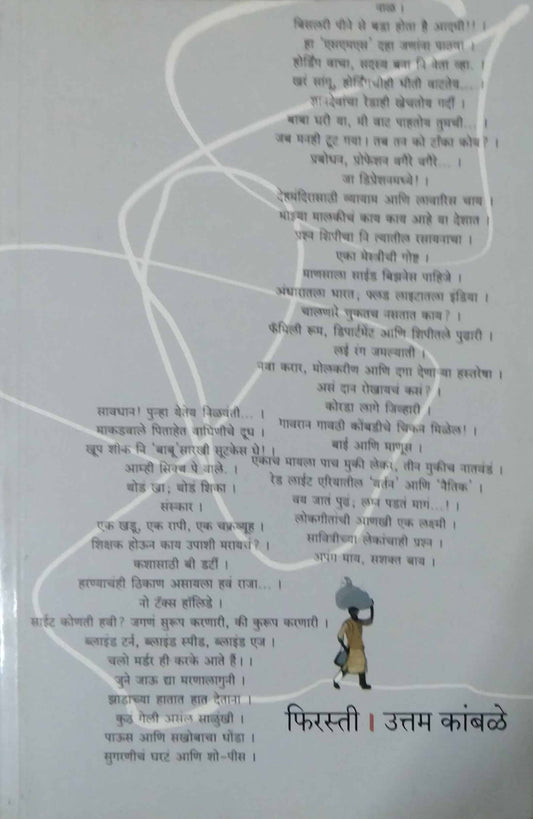 वाळ ।
बिसलरी पीने से बडा होता है आदमी!! ।
हा 'एसएमएस' दहा जणांना पाठवा ।
होर्डिंग वाचा, सदस्य बना नि नेता व्हा. ।
खरं सांगू, होर्डिंगचीही भीती वाटतेय... ।
ज्ञानदेवांचा रेडाही खेचतोय गर्दी ।
बाबा घरी या, मी वाट पाहतोय तुमची... ।
जब मनही टूट गया। तब तन को टाँका कोय? ।
प्रबोधन, प्रोफेशन वगैरे वगैरे... ।
जा डिप्रेशनमध्ये! ।
देहमंदिरासाठी व्यायाम आणि लावारिस चाय ।
माझ्या मालकीचं काय काय आहे या देशात ।
प्रश्न शिपीचा नि त्यातील रसायनाचा ।
एका मेस्त्रीची गोष्ट ।
माणसाला साईड बिझनेस पाहिजे ।
अंधारातला भारत; फ्लड लाइटातला इंडिया ।
चालणारे चुकतच नसतात काय? ।
फॅमिली रूम, डिपार्टमेंट आणि शिपीतले पुढारी ।
लई रंग जमल्याती ।
नवा करार, मोलकरीण आणि दगा देणाऱ्या हस्तरेषा ।
असं दान रोखायचं कसं? ।
कोरडा लागे जिव्हारी
गावरान गावठी कोंबडीचे चिकन मिळेल! ।
बाई आणि माणूस ।
एकाच मायला पाच मुकी लेकरं, तीन मुकीच नातवंडं ।
रेड लाईट एरियातील 'वर्तन' आणि 'नैतिक' ।
वय जातं पुढं; लग्न पडतं मागं...! ।
लोकगीतांची आणखी एक लक्ष्मी ।
सावित्रीच्या लेकांचाही प्रश्न ।
अपंग माय, सशक्त बाय ।
सावधान! पुन्हा येतेय निळवंती... ।
माकडवाले पिताहेत वाघिणीचे दूध ।
खूप शोक नि 'बाबू'सारखी सूटकेस घे!! ।
आम्ही सिनच पे वाले. ।
थोडं खा; थोडं शिका ।
संस्कार ।
एक खडू, एक रापी, एक चक्रव्यूह ।
शिक्षक होऊन काय उपाशी मरायचं? ।
कशासाठी बी डर्टी ।
हरण्याचंही ठिकाण असायला हवं राजा... ।
नो टॅक्स हॉलिडे ।
साईट कोणती हवी? जगणं सुरूप करणारी, की कुरूप करणारी ।
ब्लाइंड टर्न, ब्लाइंड स्पीड, ब्लाइंड एज ।
चलो मर्डर ही करके आते हैं। ।
जुने जाऊ द्या मरणालागुनी ।
झाडाच्या हातात हात देताना ।
कुठं गेली असंल साळुंखी ।
पाऊस आणि सखोबाचा घोडा ।
सुगरणीचं घरटं आणि शो-पीस ।
फिरस्ती । उत्तम कांबळे